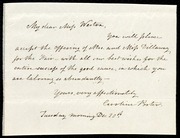 My dear Miss Weston,
You will please
accept the offering of Mrs and Miss Dellaway,
for the Fair — with all our best wishes for the
entire success of the good cause, in which you
are laboring so abundantly —
Yours, very affectionately,
Caroline
Tuesday morning Dec. 20th